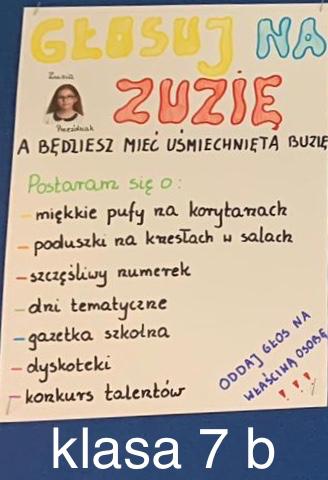 GŁOSUJ NA
Zuzia
ZUZIĘ
A BĘDZIESZ MIEĆ UŚMIECHNIĘTĄ BUZIĘ
Postaram się o:
- miękkie pufy na korytarzach
- poduszki na krzesłach w salach
- szczęśliwy numerek
- dni tematyczne
- gazetka szkolna
- dyskoteki
- konkurs talentów
ODDAJ GŁOS NA
WŁAŚCIWĄ OSOBĘ
!!!
klasa 7 b